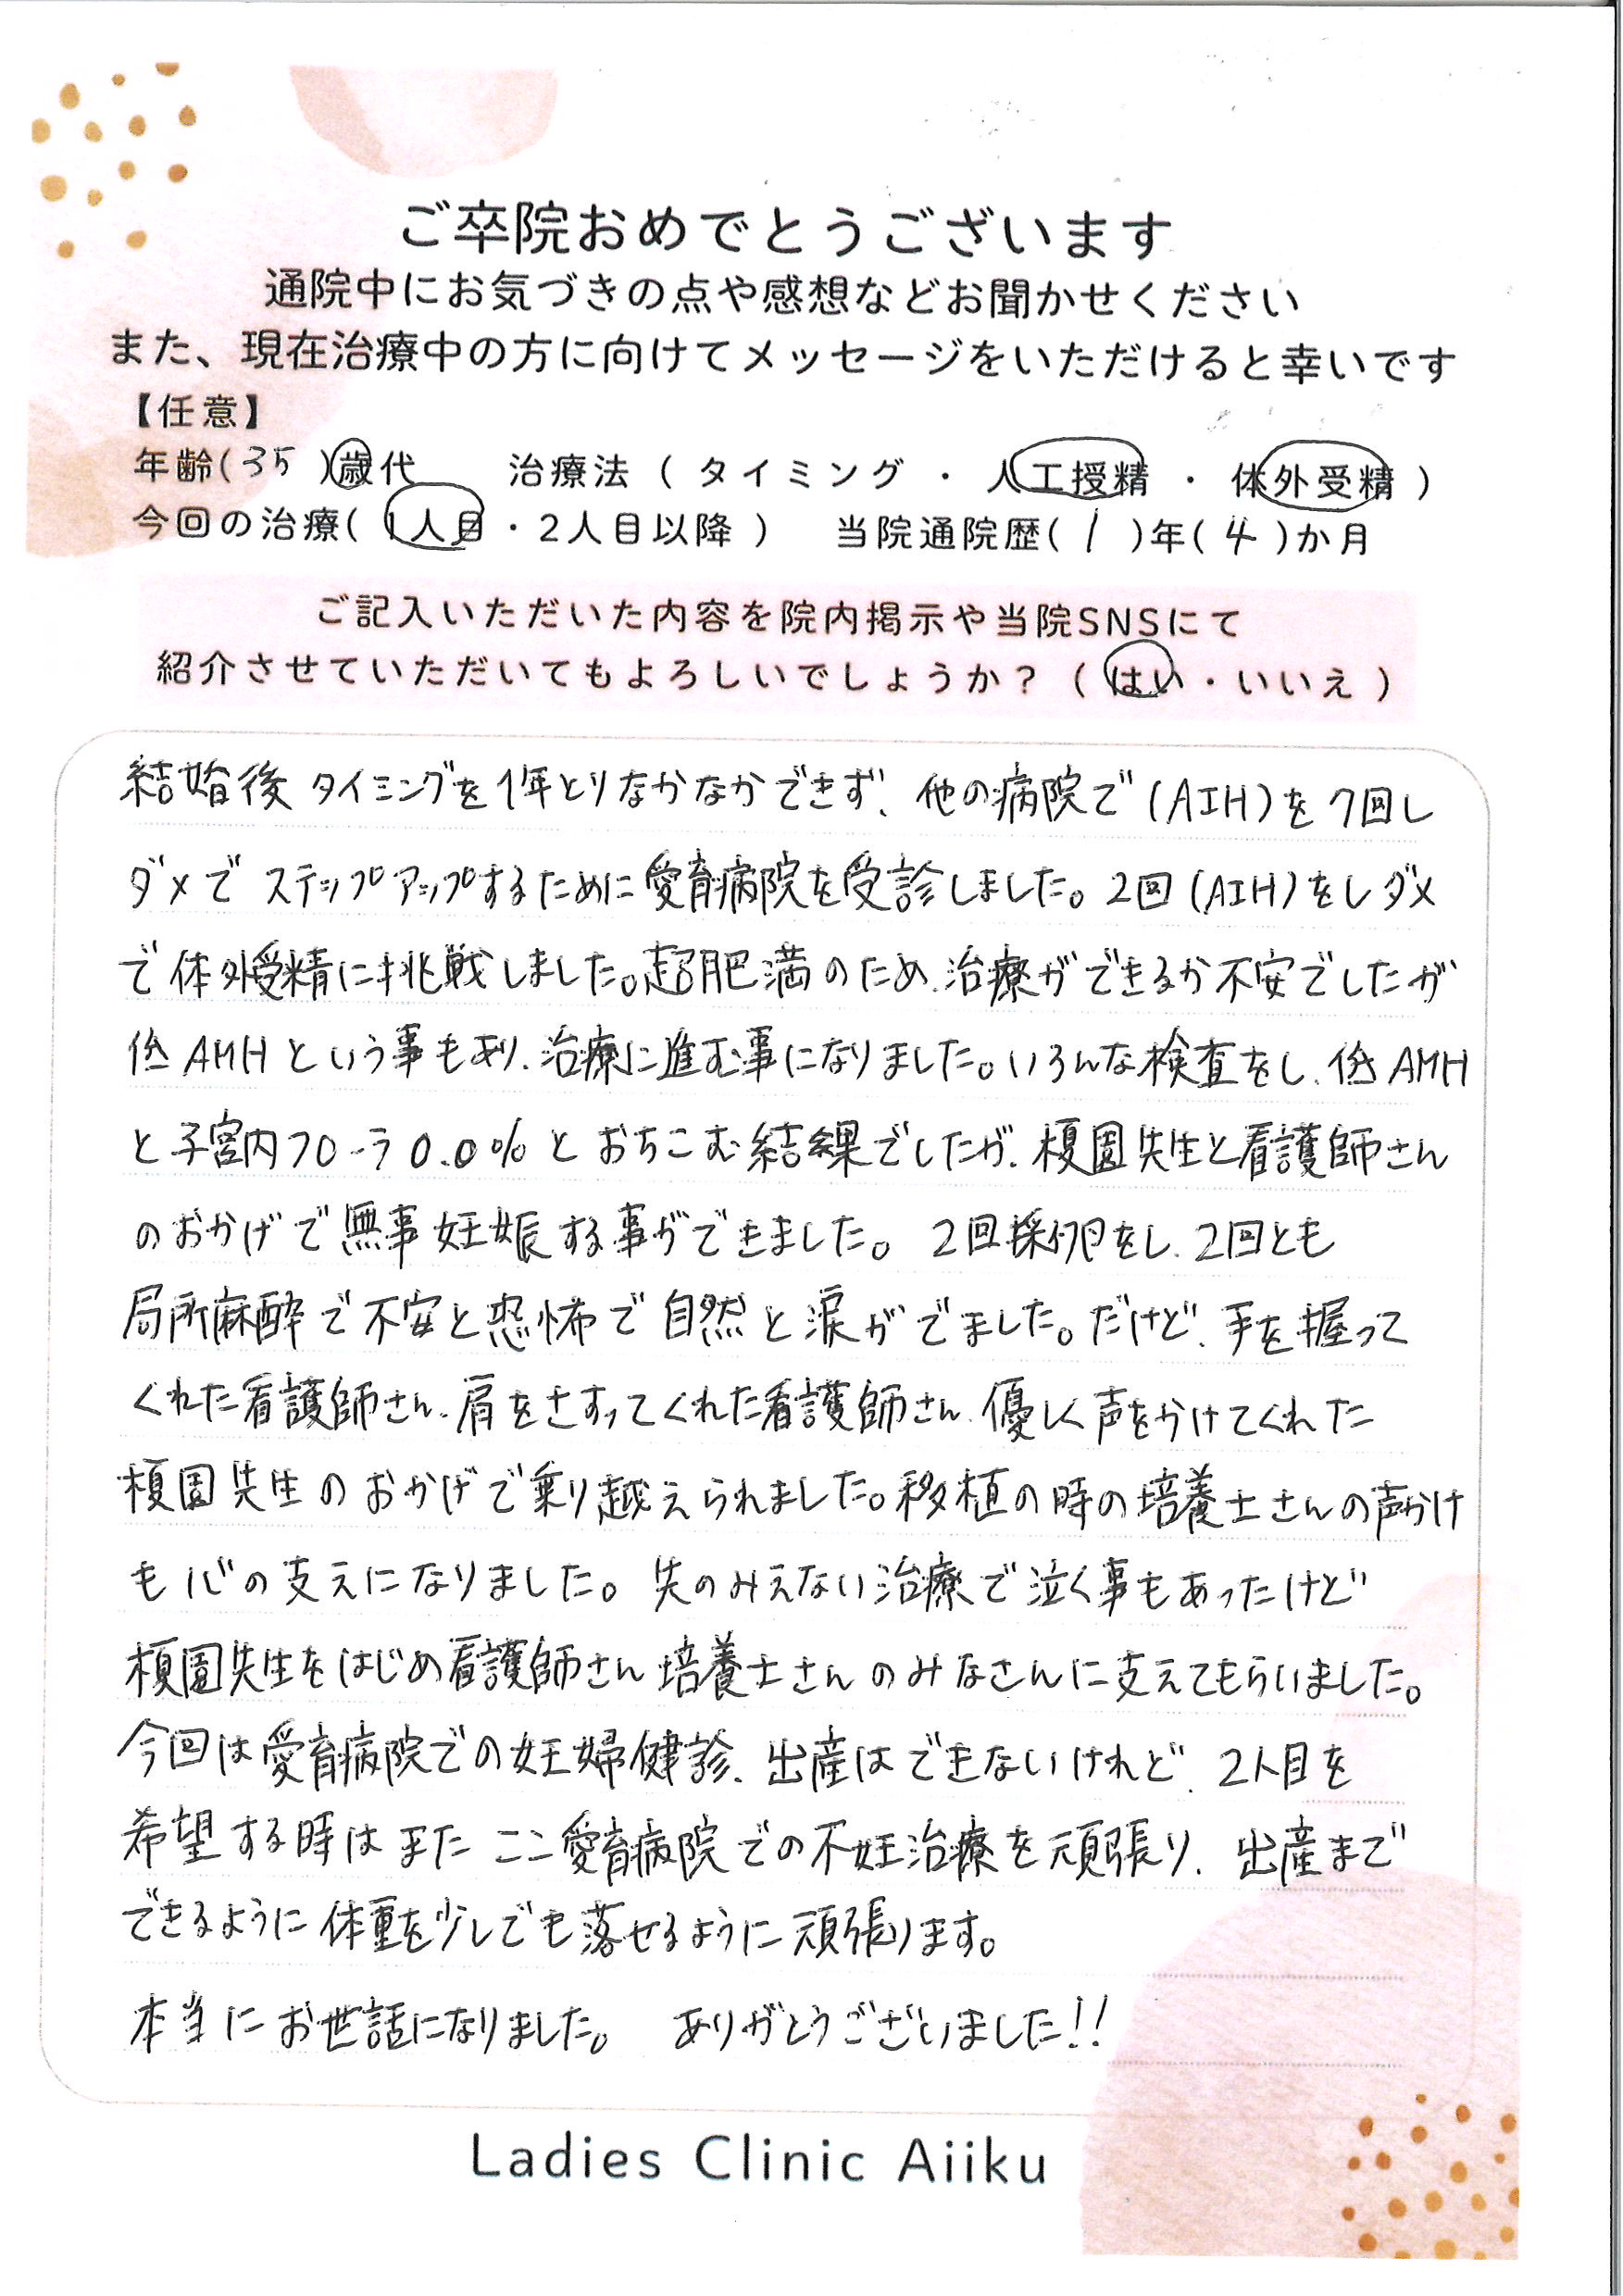 ご卒院おめでとうございます
通院中にお気づきの点や感想などお聞かせください
また、現在治療中の方に向けてメッセージをいただけると幸いです
【任意】
年齢(35)歳代 治療法(タイミング・人工授精・体外受精)
今回の治療(1人目・2人目以降) 当院通院歴(1)年(4)か月
ご記入いただいた内容を院内掲示や当院SNSにて
紹介させていただいてもよろしいでしょうか?(はい・いいえ)
結婚後タイミングを1年とりなかなかできず、他の病院で(AIH)を7回し
ダメでステップアップするために愛育病院を受診しました。2回(AIH)をしダメ
で体外受精に挑戦しました。超肥満のため、治療ができるか不安でしたが
低AMHという事もあり、治療に進む事になりました。いろんな検査をし、低AMH
と子宮内フローラ0.0%とおちこむ結果でしたが、榎園先生と看護師さん
のおかげで無事妊娠する事ができました。2回採卵をし、2回とも
局所麻酔で不安と恐怖で自然と涙がでました。だけど、手を握って
くれた看護師さん、肩をさすってくれた看護師さん、優しく声をかけてくれた
榎園先生のおかげで乗り越えられました。移植の時の培養士さんの声かけ
も心の支えになりました。先のみえない治療で泣く事もあったけど
榎園先生をはじめ看護師さん培養士さんのみなさんに支えてもらいました。
今回は愛育病院での妊婦健診、出産はできないけれど、2人目を
希望する時はまたここ愛育病院での不妊治療を頑張り、出産まで
できるように体重を少しでも落せるように頑張ります。
本当にお世話になりました。 ありがとうございました!!
Ladies Clinic Aiiku